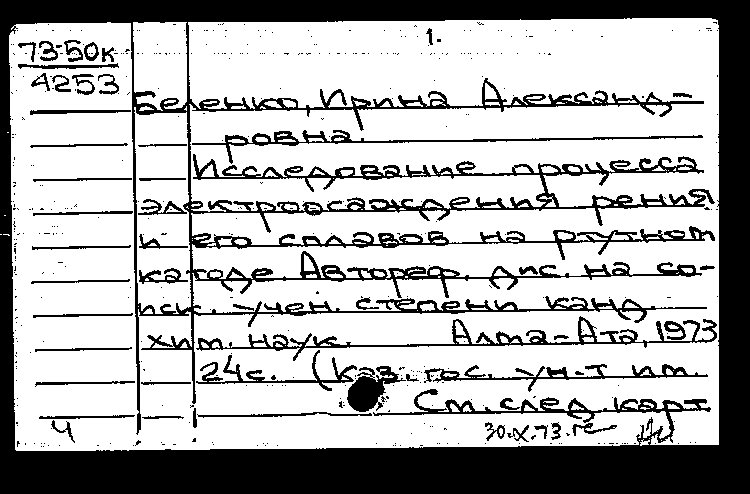 1.
73-50к
4253
Беленко, Ирина Александ-
ровна.
Исследование процесса
электроосаждения рения
и его сплавов на ртутном
катоде. Автореф. дис. на со-
иск. учен. степени канд.
хим. наук. Алма-Ата, 1973
24 с. (Каз. гос. ун-т им.
См. след. карт.
Ч 30.X.73.